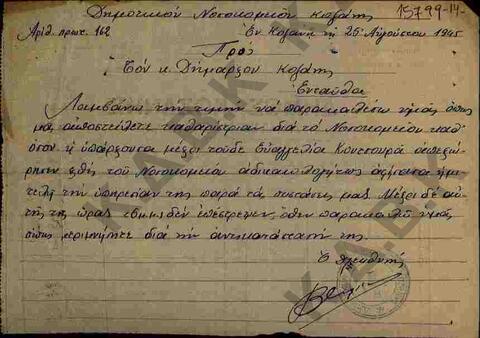 Δημοτικόν Νοσοκομείον Κοζάνης
15799-14-
Αριθ. πρωτ. 162 Εν Κοζάνη τη 25 Αυγούστου 1945
Προς
Τον κ. Δήμαρχον Κοζάνης
Ενταύθα
Λαμβάνω την τιμήν να παρακαλέσω υμάς όπως
μας αποστείλετε καθαρίστριαν διά το Νοσοκομείον καθ'
όσον η υπάρχουσα μέχρι τούδε Ευαγγελία απεχώ-
ρησεν χθες του Νοσοκομείου αδικαιολογήτως αφήσασα ημι-
τελή την υπηρεσίαν της παρά τας συστάσεις μας. Μέχρι δε αυ-
της της ώρας δεν επέστρεψεν, όθεν παρακαλώ υμάς
όπως μεριμνήσητε διά την αντικατάστασίν της.
Ο Διευθυντής